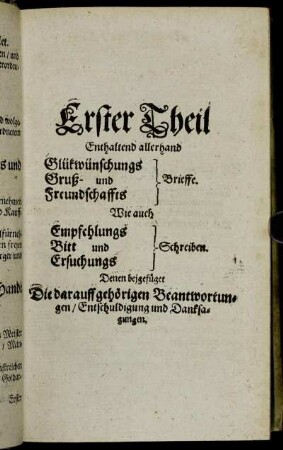 Erster Theil
Enthaltend allerhand
Glükwünschungs
Gruß- und
Freundschaffts
Brieffe.
Wie auch
Empfehlungs
Bitt und
Ersuchungs
Schreiben.
Denen beygefüget
Die darauff gehörigen Beantwortun-
gen / Entschuldigung und Danksa-
gungen.